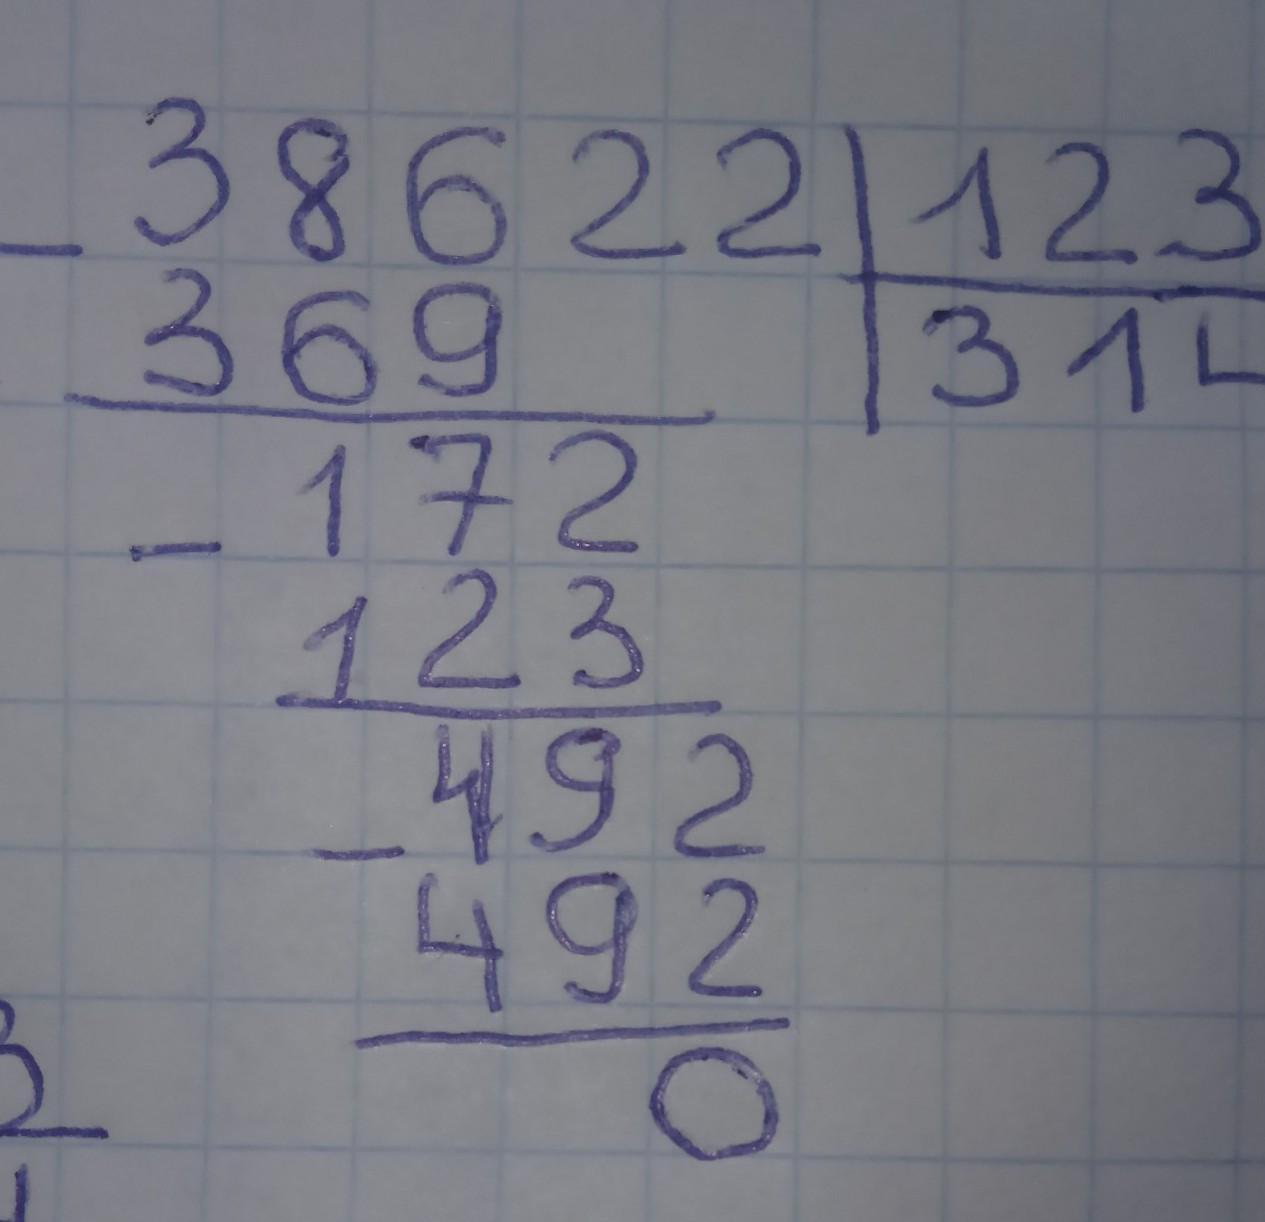 - 38622 | 123
369 | 314
- 172
123
- 492
492
0
3